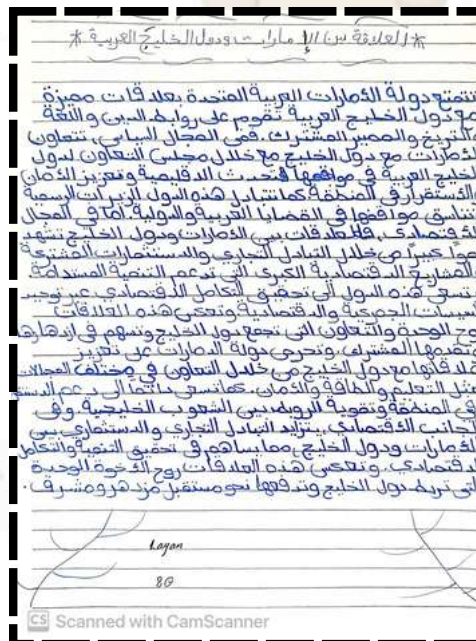 * العلاقة بين الإمارات ودول الخليج العربية *
تتمتع دولة الأمارات العربية المتحدة بعلاقات مميزة
مع دول الخليج العربية تقوم على روابط الدين واللغة
التاريخ والمصير المشترك. ففي المجال السياسي، تتعاون
الأمارات مع دول الخليج مع خلال مجلس التعاون لدول
الخليج العربية في مواقفها وتعزيز الأمان
الأستقرار في المنطقة كما تتبادل هذه الدول الزيارات الرسمية
مواقفها في القضايا العربية والدولية. أما في المجال
الأقتصادي، فالعلاقات بين الأمارات ودول الخليج تشهد
نمواً كبيراً من خلال التبادل التجاري والاستثمارات المشتركة
المشاريع الاقتصادية الكبرى التي تدعم التنمية المستدامة.
تسعى هذه الدول الى تحقيق التكامل الاقتصادي عبر توحيد
الجمركية والاقتصادية وتعكس هذه العلاقات
روح الوحدة والتعاون التي تجمع دول الخليج وتسهم في ازدهارها
تقدمها المشترك. وتحرص دولة الامارات على تعزيز
علاقاتها مع دول الخليج من خلال التعاون في مختلف المجالات
مثل التعليم والطاقة والأمان. كما تسعى دائما الى دعم
في المنطقة وتقوية الروابط بين الشعوب الخليجية. وفي
الجانب الأقتصادي، يتزايد التبادل التجاري والاستثماري بين
الأمارات ودول الخليج، مما يساهم في تحقيق التنمية والتكامل
الاقتصادي. وتعكس هذه العلاقات روح الأخوة الوحدة
التي تربط دول الخليج وتدفعها نحو مستقبل مزدهر ومشرف.
Layan
8G
CS Scanned with CamScanner